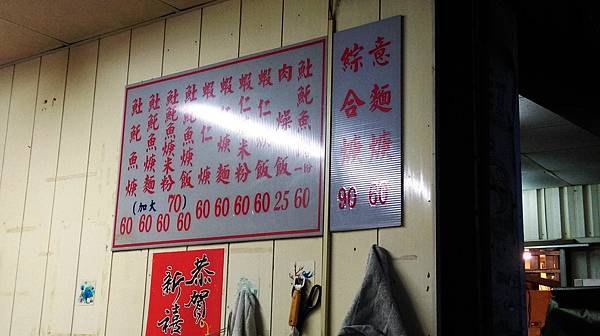 意麵焿 60
綜合焿 90
土魠魚焿一份 60
肉燥飯 25
蝦仁飯 60
蝦仁焿米粉 60
蝦仁焿麵 60
蝦仁焿 60
土魠魚焿飯 60
土魠魚焿米粉 60
土魠魚焿麵 60
土魠魚焿 60
(加大 70)
恭賀
新禧